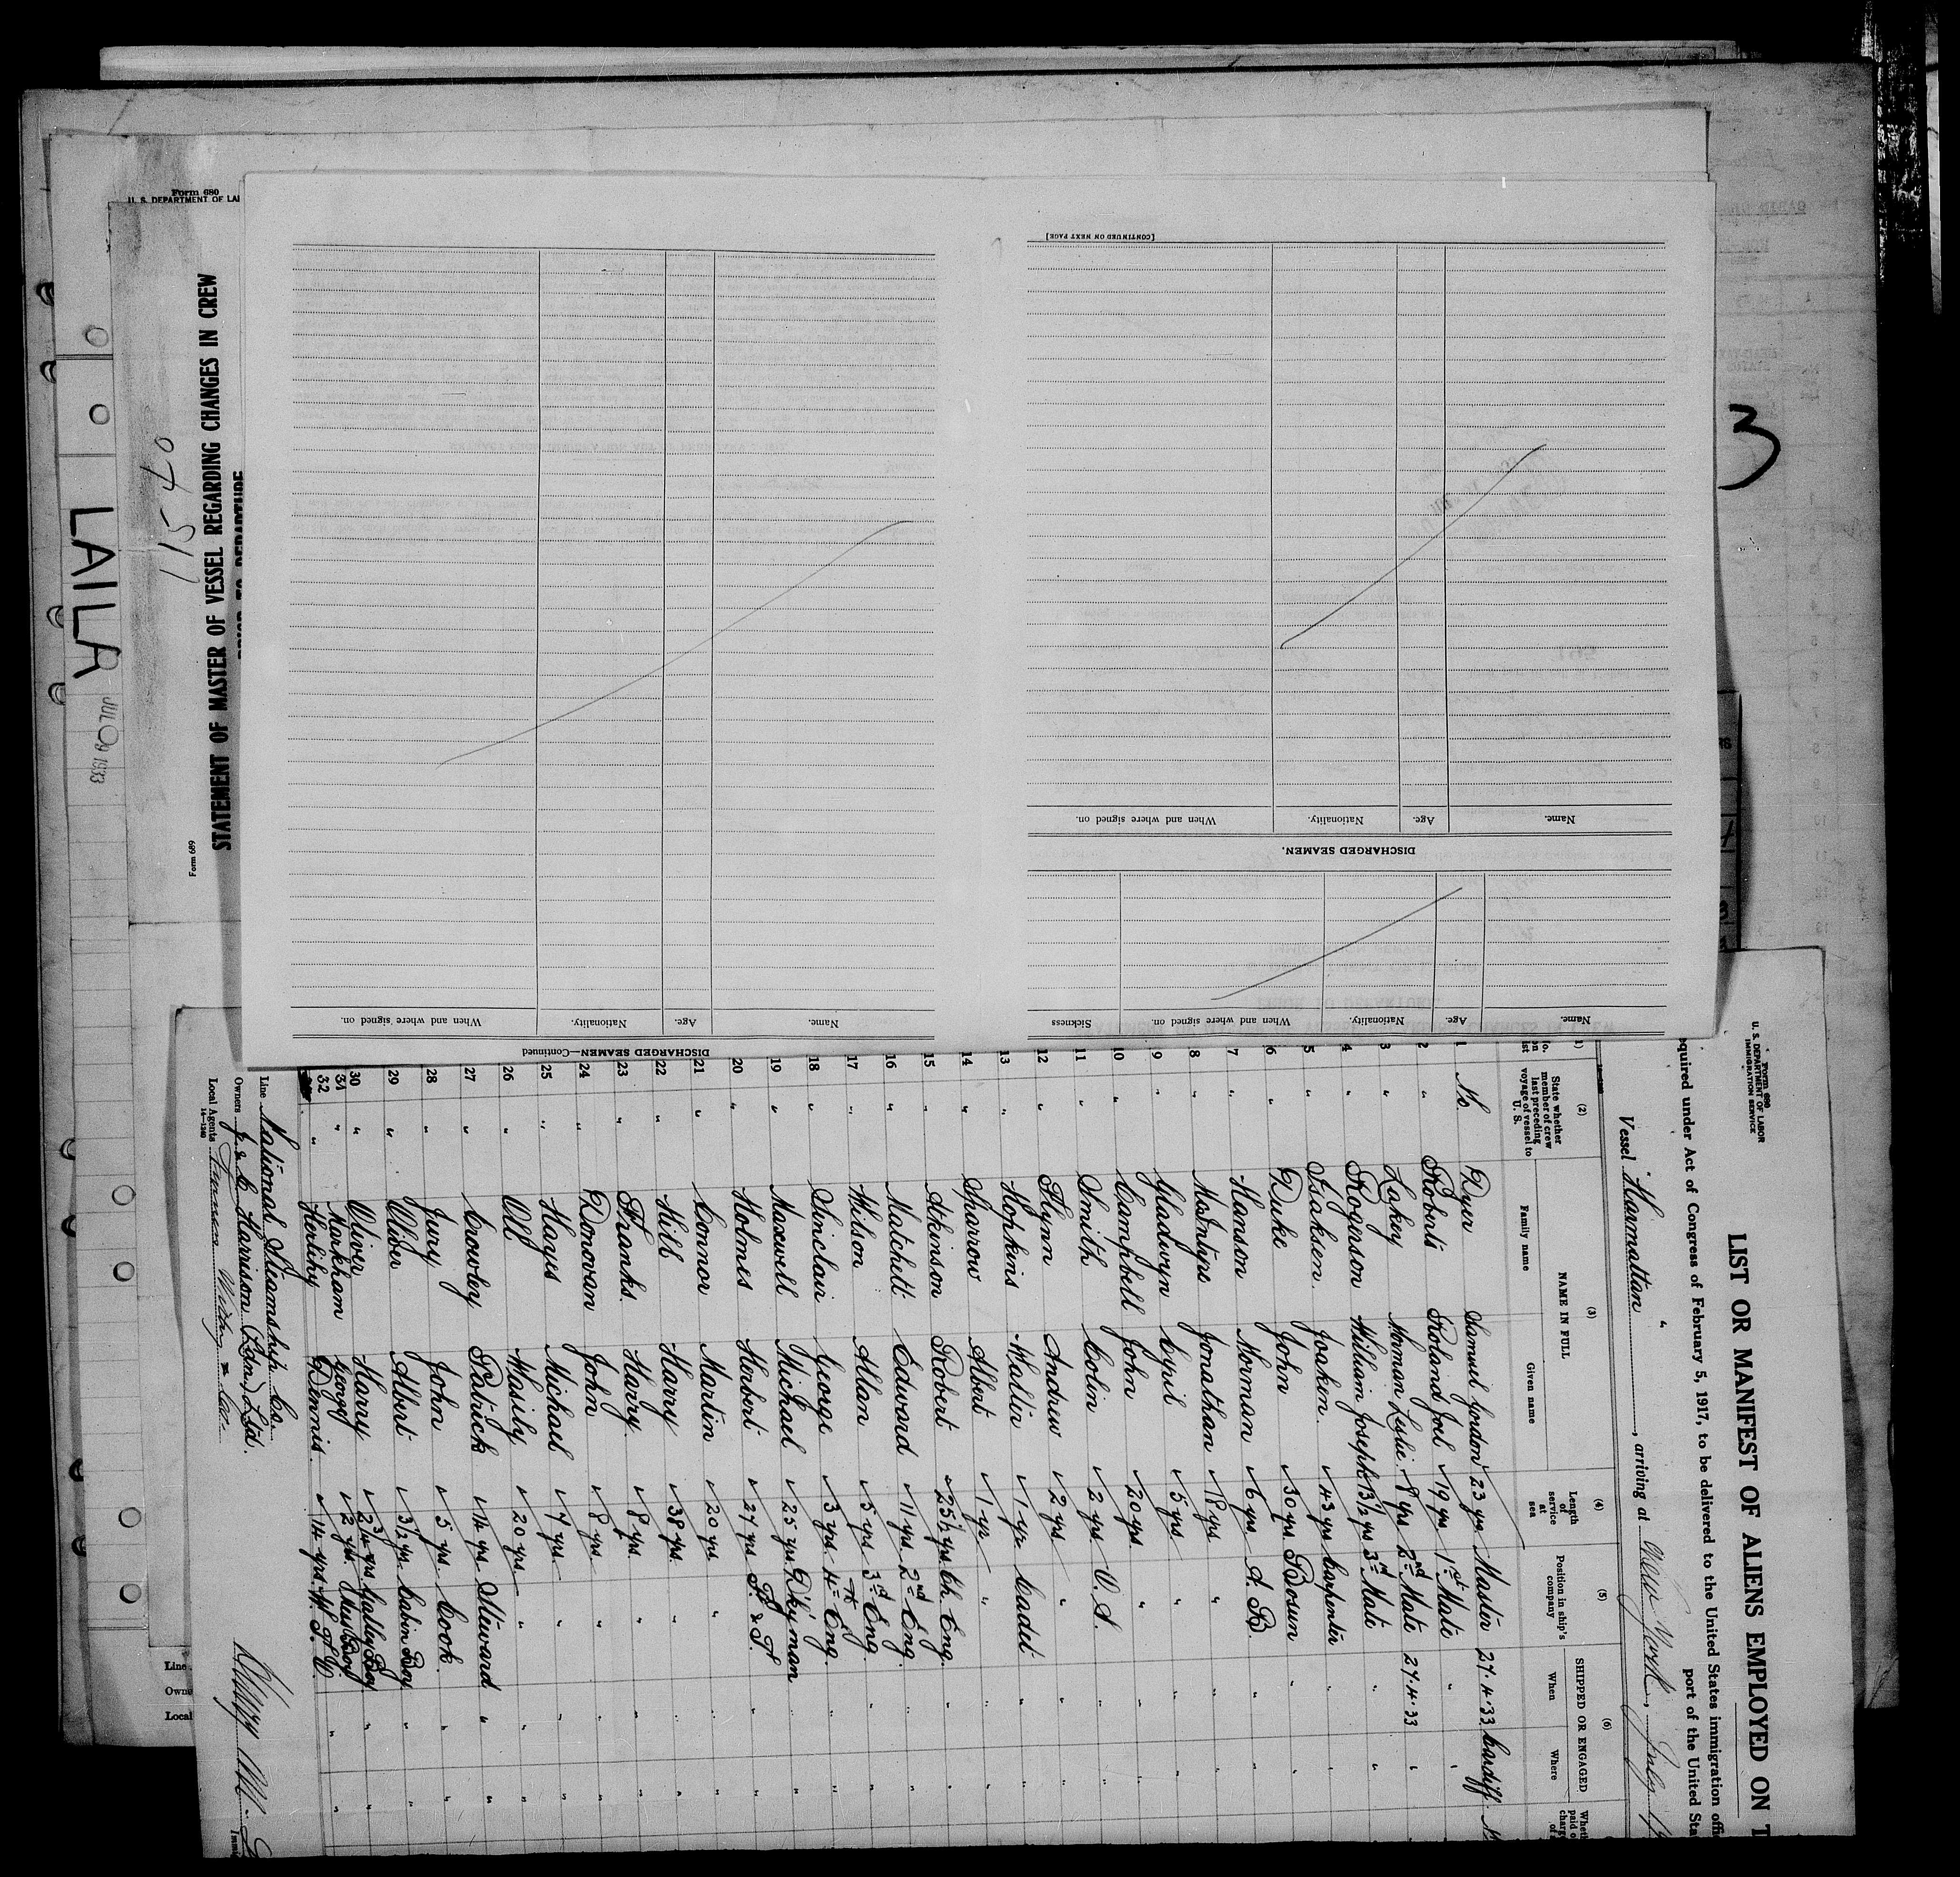 Form 680
U. S. DEPARTMENT OF LA
LAILA
JUL 9 1933
Form 689
STATEMENT OF MASTER OF VESSEL REGARDING CHANGES IN CREW
PRIOR TO DEPARTURE
3
DISCHARGED SEAMEN—Continued
Name. Age. Nationality. When and where signed on.
Name. Age. Nationality. When and where signed on. Sickness
DISCHARGED SEAMEN.
Name. Age. Nationality. When and where signed on.
[CONTINUED ON NEXT PAGE]
Form 680
U. S. DEPARTMENT OF LABOR
IMMIGRATION SERVICE
LIST OR MANIFEST OF ALIENS EMPLOYED ON T
equired under Act of Congress of February 5, 1917, to be delivered to the United States immigration offi
port of the United Sta
Vessel "Harmattan", arriving at New York, July
(2) (3) (4) (5) (6)
State whether member of crew last preceding voyage of vessel to U. S.
NAME IN FULL
Family name Given name
Length of service at sea
Position in ship's company
SHIPPED OR ENGAGED
When Where
1 No Dyer Samuel Gordon 23 yrs Master 27.4.33 Cardiff
2 " Roberts Roland Joel 19 yrs 1st Mate "
3 " Lakey Norman Leslie 8 yrs 2nd Mate 27.4.33 "
4 " Rogerson William Joseph 13½ yrs 3rd Mate " "
5 " Isaksen Joakim 43 yrs Carpenter " "
6 " Duke John 30 yrs Bosun " "
7 " Hanson Norman 6 yrs A. B. " "
8 " McIntyre Jonathan 18 yrs " " "
9 " Gladwyn Cyril 5 yrs " " "
10 " Campbell John 20 yrs " " "
11 " Smith Colin 2 yrs O. S. " "
12 " Flynn Andrew 2 yrs " " "
13 " Hopkins 1 yr Cadet " "
14 " Sparrow Albert 1 yr " " "
15 " Atkinson Robert 25½ yrs Ch. Eng. " "
16 " Matchett Edward 11 yrs 2nd Eng. " "
17 " Wilson Allan 5 yrs 3rd Eng. " "
18 " Sinclair George 3 yrs 4th Eng. " "
19 " Maxwell Michael 25 yrs D'ky man " "
20 " Holmes Herbert 27 yrs F. & T. " "
21 " Connor Martin 20 yrs " " "
22 " Hill Harry 38 yrs " " "
23 " Franks Harry 8 yrs " " "
24 " Donovan John 8 yrs " " "
25 " Hayes Michael 7 yrs " " "
26 " Oll Wasily 20 yrs " " "
27 " Crowley Patrick 14 yrs Steward " "
28 " Jury John 5 yrs Cook " "
29 " Oliver Albert 3½ yrs Cabin Boy " "
30 " Oliver Harry 2¾ yrs Galley Boy " "
31 " Markham George 2 yrs Boy
32 " Herlihy Dennis 14 yrs " "
Line National Steamship Co.
Owners J. & C. Harrison (Ldn) Ltd.
Local Agents
14—1240
Line
Owne
Local